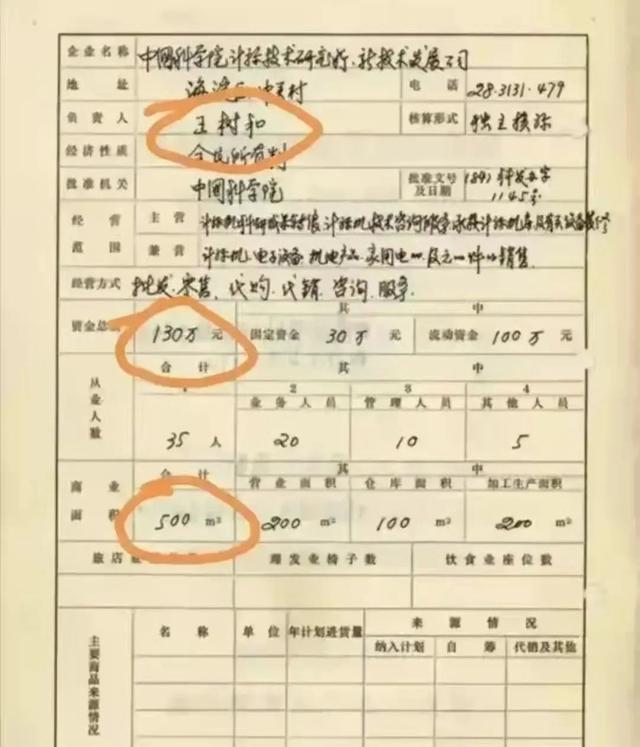 企业名称 中国科学院计标技术研究所、新技术发展公司
地址 海淀区 中关村 电话 28.3131.479
负责人 王树和 核算形式 独立核标
经济性质 全民所有制
批准机关 中国科学院 批准文号及日期 (84) 科发 字 1145号
经营范围 主营 计标机科研成果转让 计标机技术咨询服务、承接计标机
兼营 计标机、电子设备 机电产品 家用电 销售.
经营方式 批发、零售、代购、代销、咨询、服务
资金总额 130万 元 其中 固定资金 30万 元 流动资金 100万 元
从业人数 合计 其中
1 2 3 4
业务人员 管理人员 其他人员
35 人 20 10 5
商业面积 合计 其中
营业面积 仓库面积 加工生产面积
500 m² 200 m² 100 m² 200 m²
旅店 理发业椅子数 饮食业座位数
主要商品来源情况 名称 单位 年计划进货量 来源情况
纳入计划 自筹 代销及其他